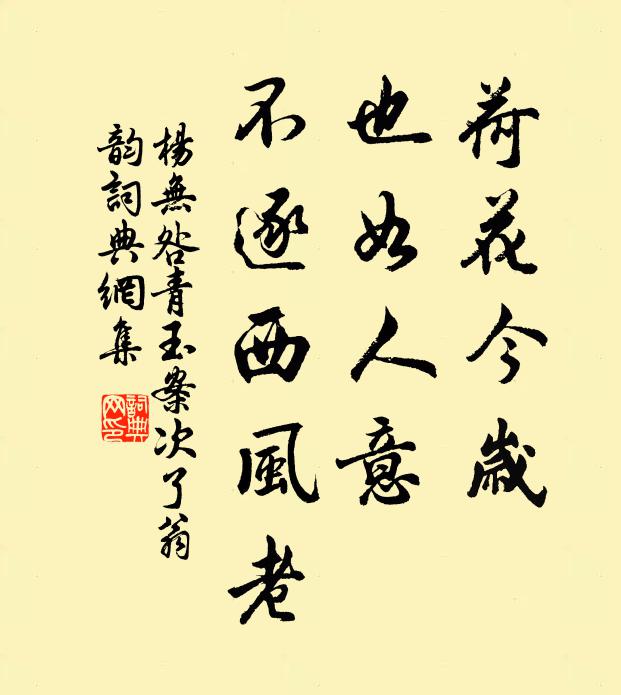 荷花今歲
也如人意
不逐西風老
楊無咎青玉案次了翁
韵詞典網集
詞典
网印